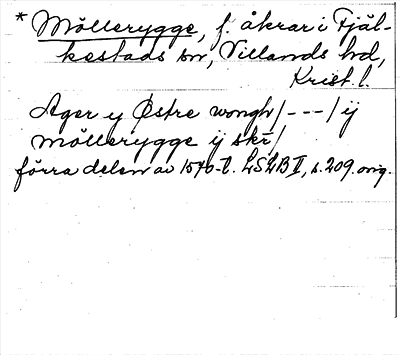 * Möllerygge, f. åkrar i Fjäl-
kestads sn, Villands hd,
Krist. l.
Ager y Østre wongh/---/ij
möllerygge ij skr/
förra delen av 1540-t. LSLB II, s. 209. orig.